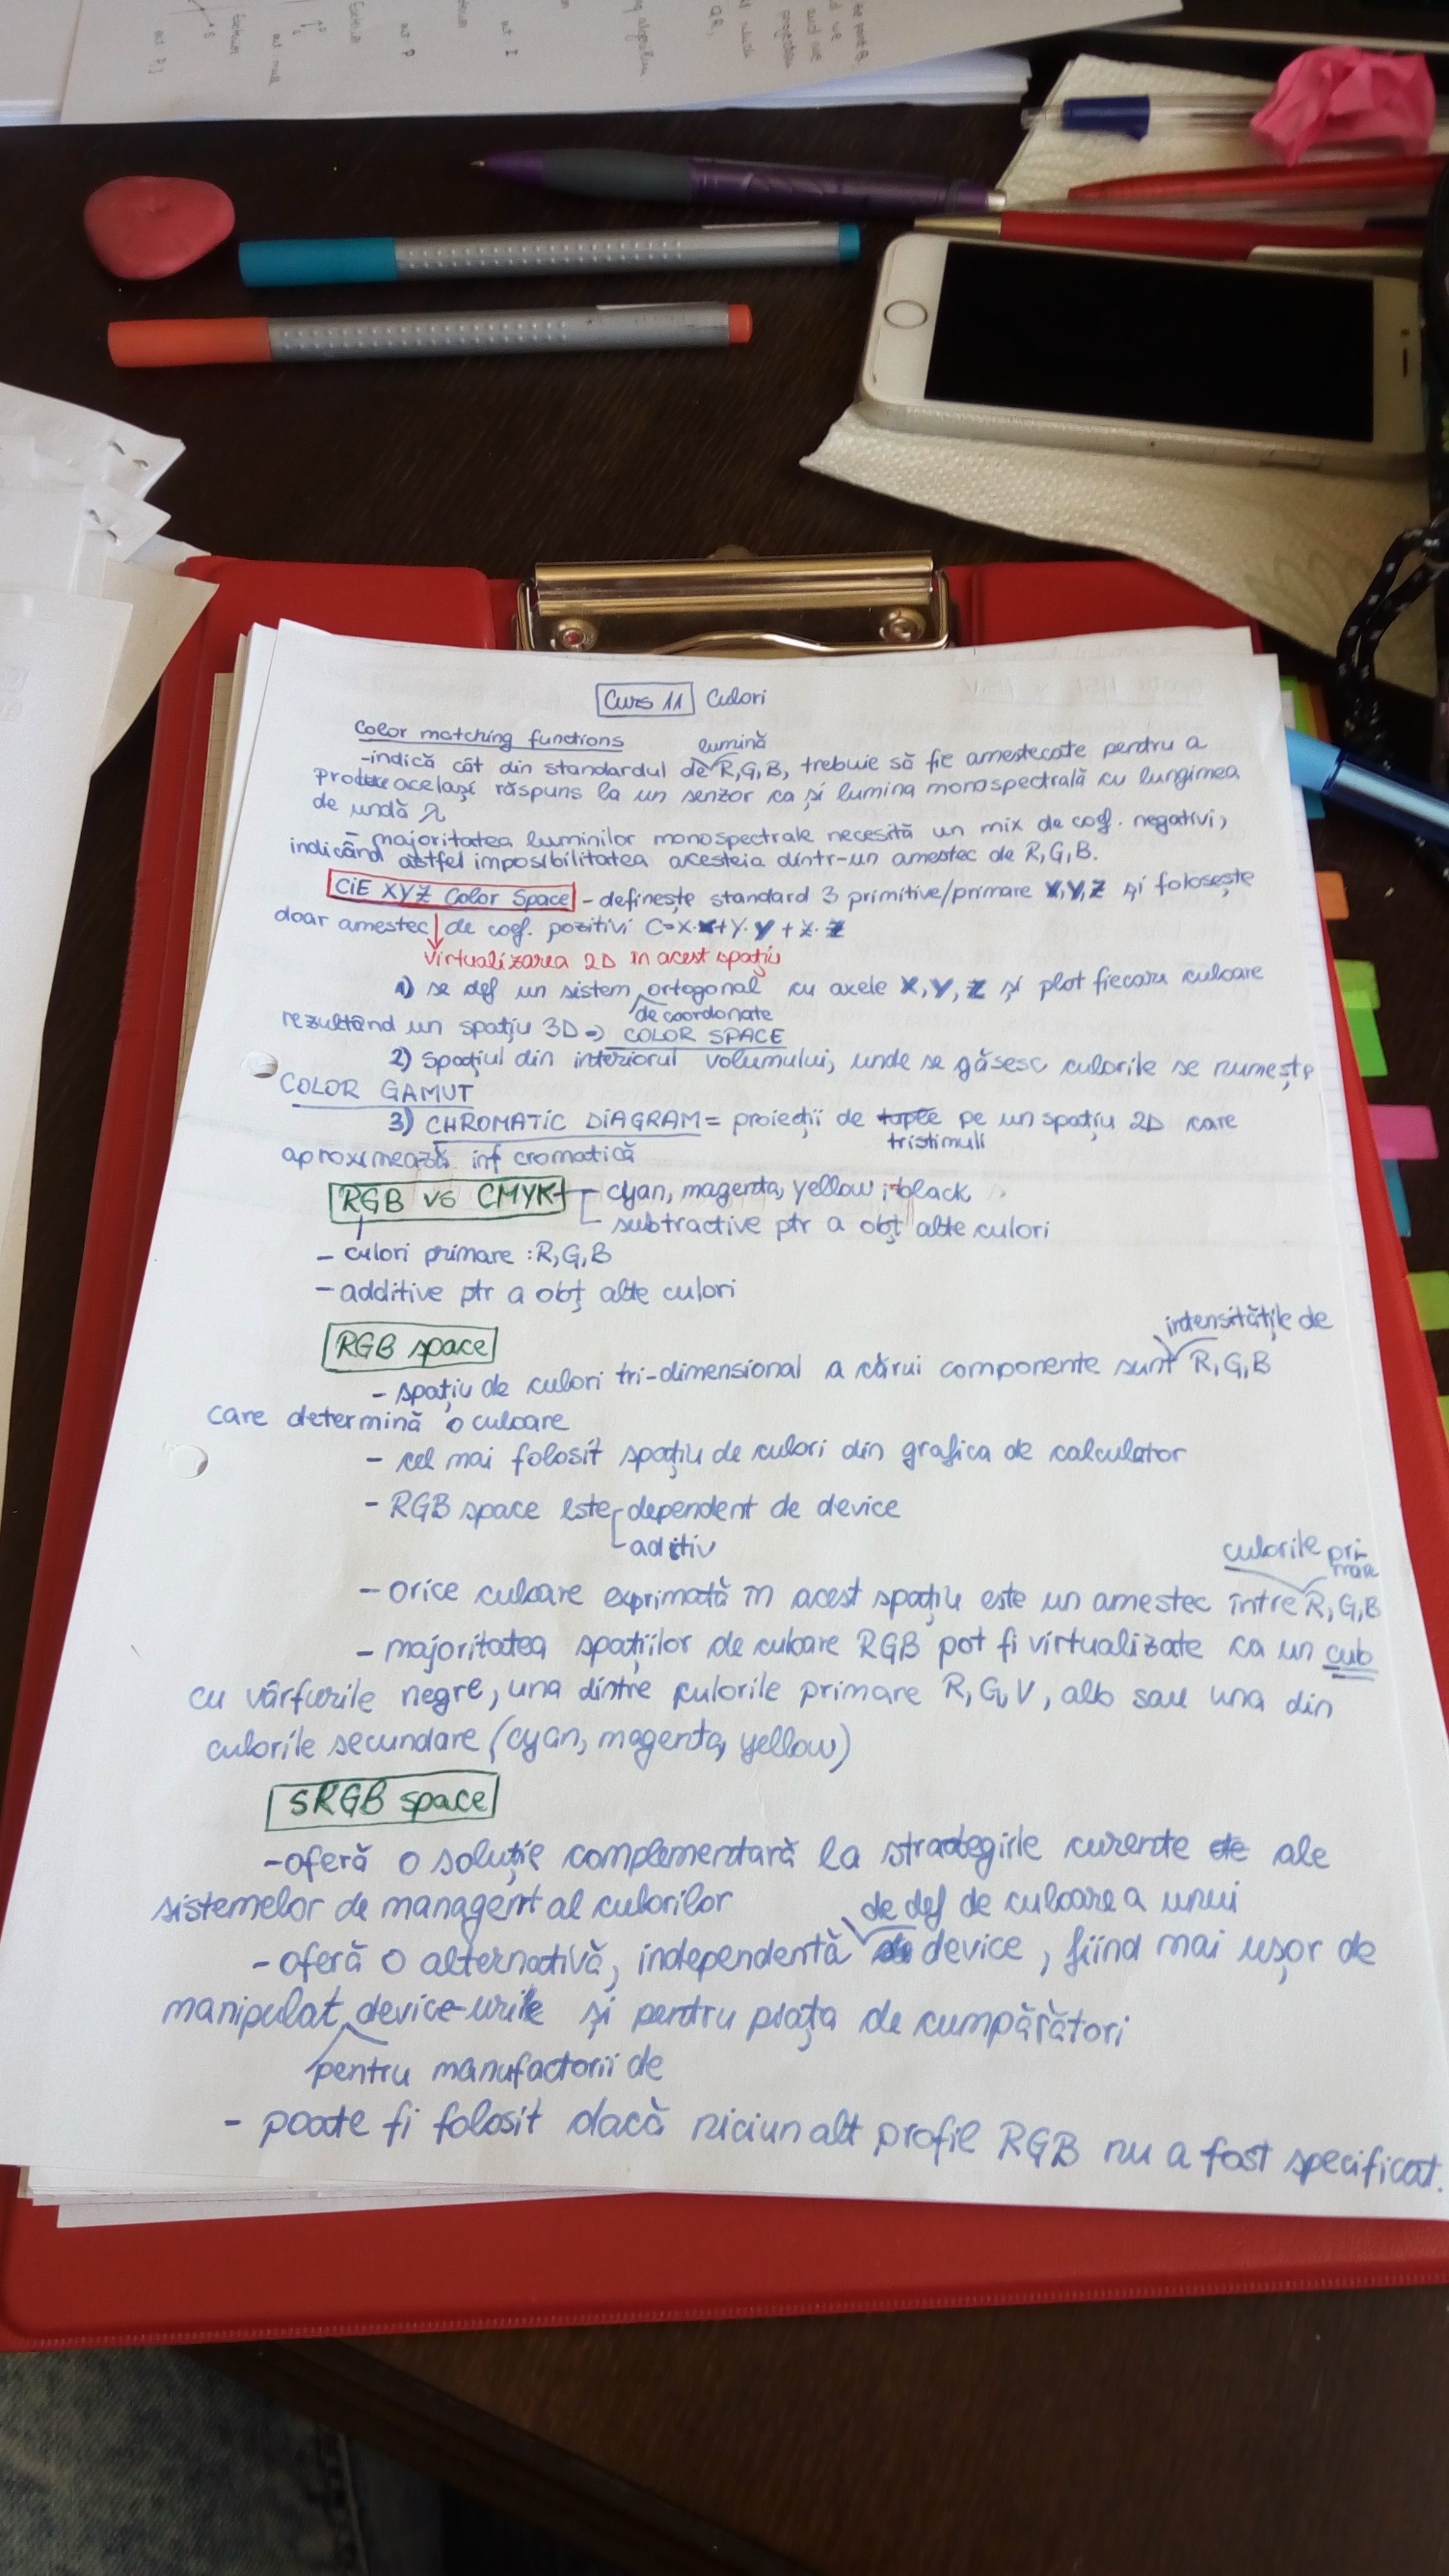 Curs 11 Culori
Color matching functions
lumină
-indică cât din standardul de R,G,B, trebuie să fie amestecate pentru a
produce același răspuns la un senzor ca și lumina monospectrală cu lungimea
de undă λ
- majoritatea luminilor monospectrale necesită un mix de coef. negativi,
indicând astfel imposibilitatea acesteia dintr-un amestec de R,G,B.
CIE XYZ Color Space - definește standard 3 primitive/primare X,Y,Z și folosește
doar amestec de coef. pozitivi C=X·X+Y·Y+Z·Z
Virtualizarea 2D în acest spațiu
1) se def un sistem ortogonal cu axele X,Y,Z și plot fiecare culoare
de coordonate
rezultând un spațiu 3D => COLOR SPACE
2) Spațiul din interiorul volumului, unde se găsesc culorile se numește
COLOR GAMUT
3) CHROMATIC DIAGRAM = proiecții de tuple pe un spațiu 2D care
tristimuli
aproximează inf cromatică
RGB vs CMYK - cyan, magenta, yellow, black
- subtractive ptr a obț alte culori
- culori primare : R,G,B
- additive ptr a obț alte culori
RGB space
intensitățile de
- spațiu de culori tri-dimensional a cărui componente sunt R,G,B
care determină o culoare
- cel mai folosit spațiu de culori din grafica de calculator
- RGB space este dependent de device
aditiv
culorile primare
- orice culoare exprimată în acest spațiu este un amestec între R,G,B
- majoritatea spațiilor de culoare RGB pot fi virtualizate ca un cub
cu vârfurile negre, una dintre culorile primare R,G,V, alb sau una din
culorile secundare (cyan, magenta, yellow)
sRGB space
-oferă o soluție complementară la strategiile curente de ale
sistemelor de managent al culorilor
de def de culoare a unui
- oferă o alternativă, independentă de device, fiind mai ușor de
manipulat device-urile și pentru piața de cumpărători
pentru manufactorii de
- poate fi folosit dacă niciun alt profil RGB nu a fost specificat.